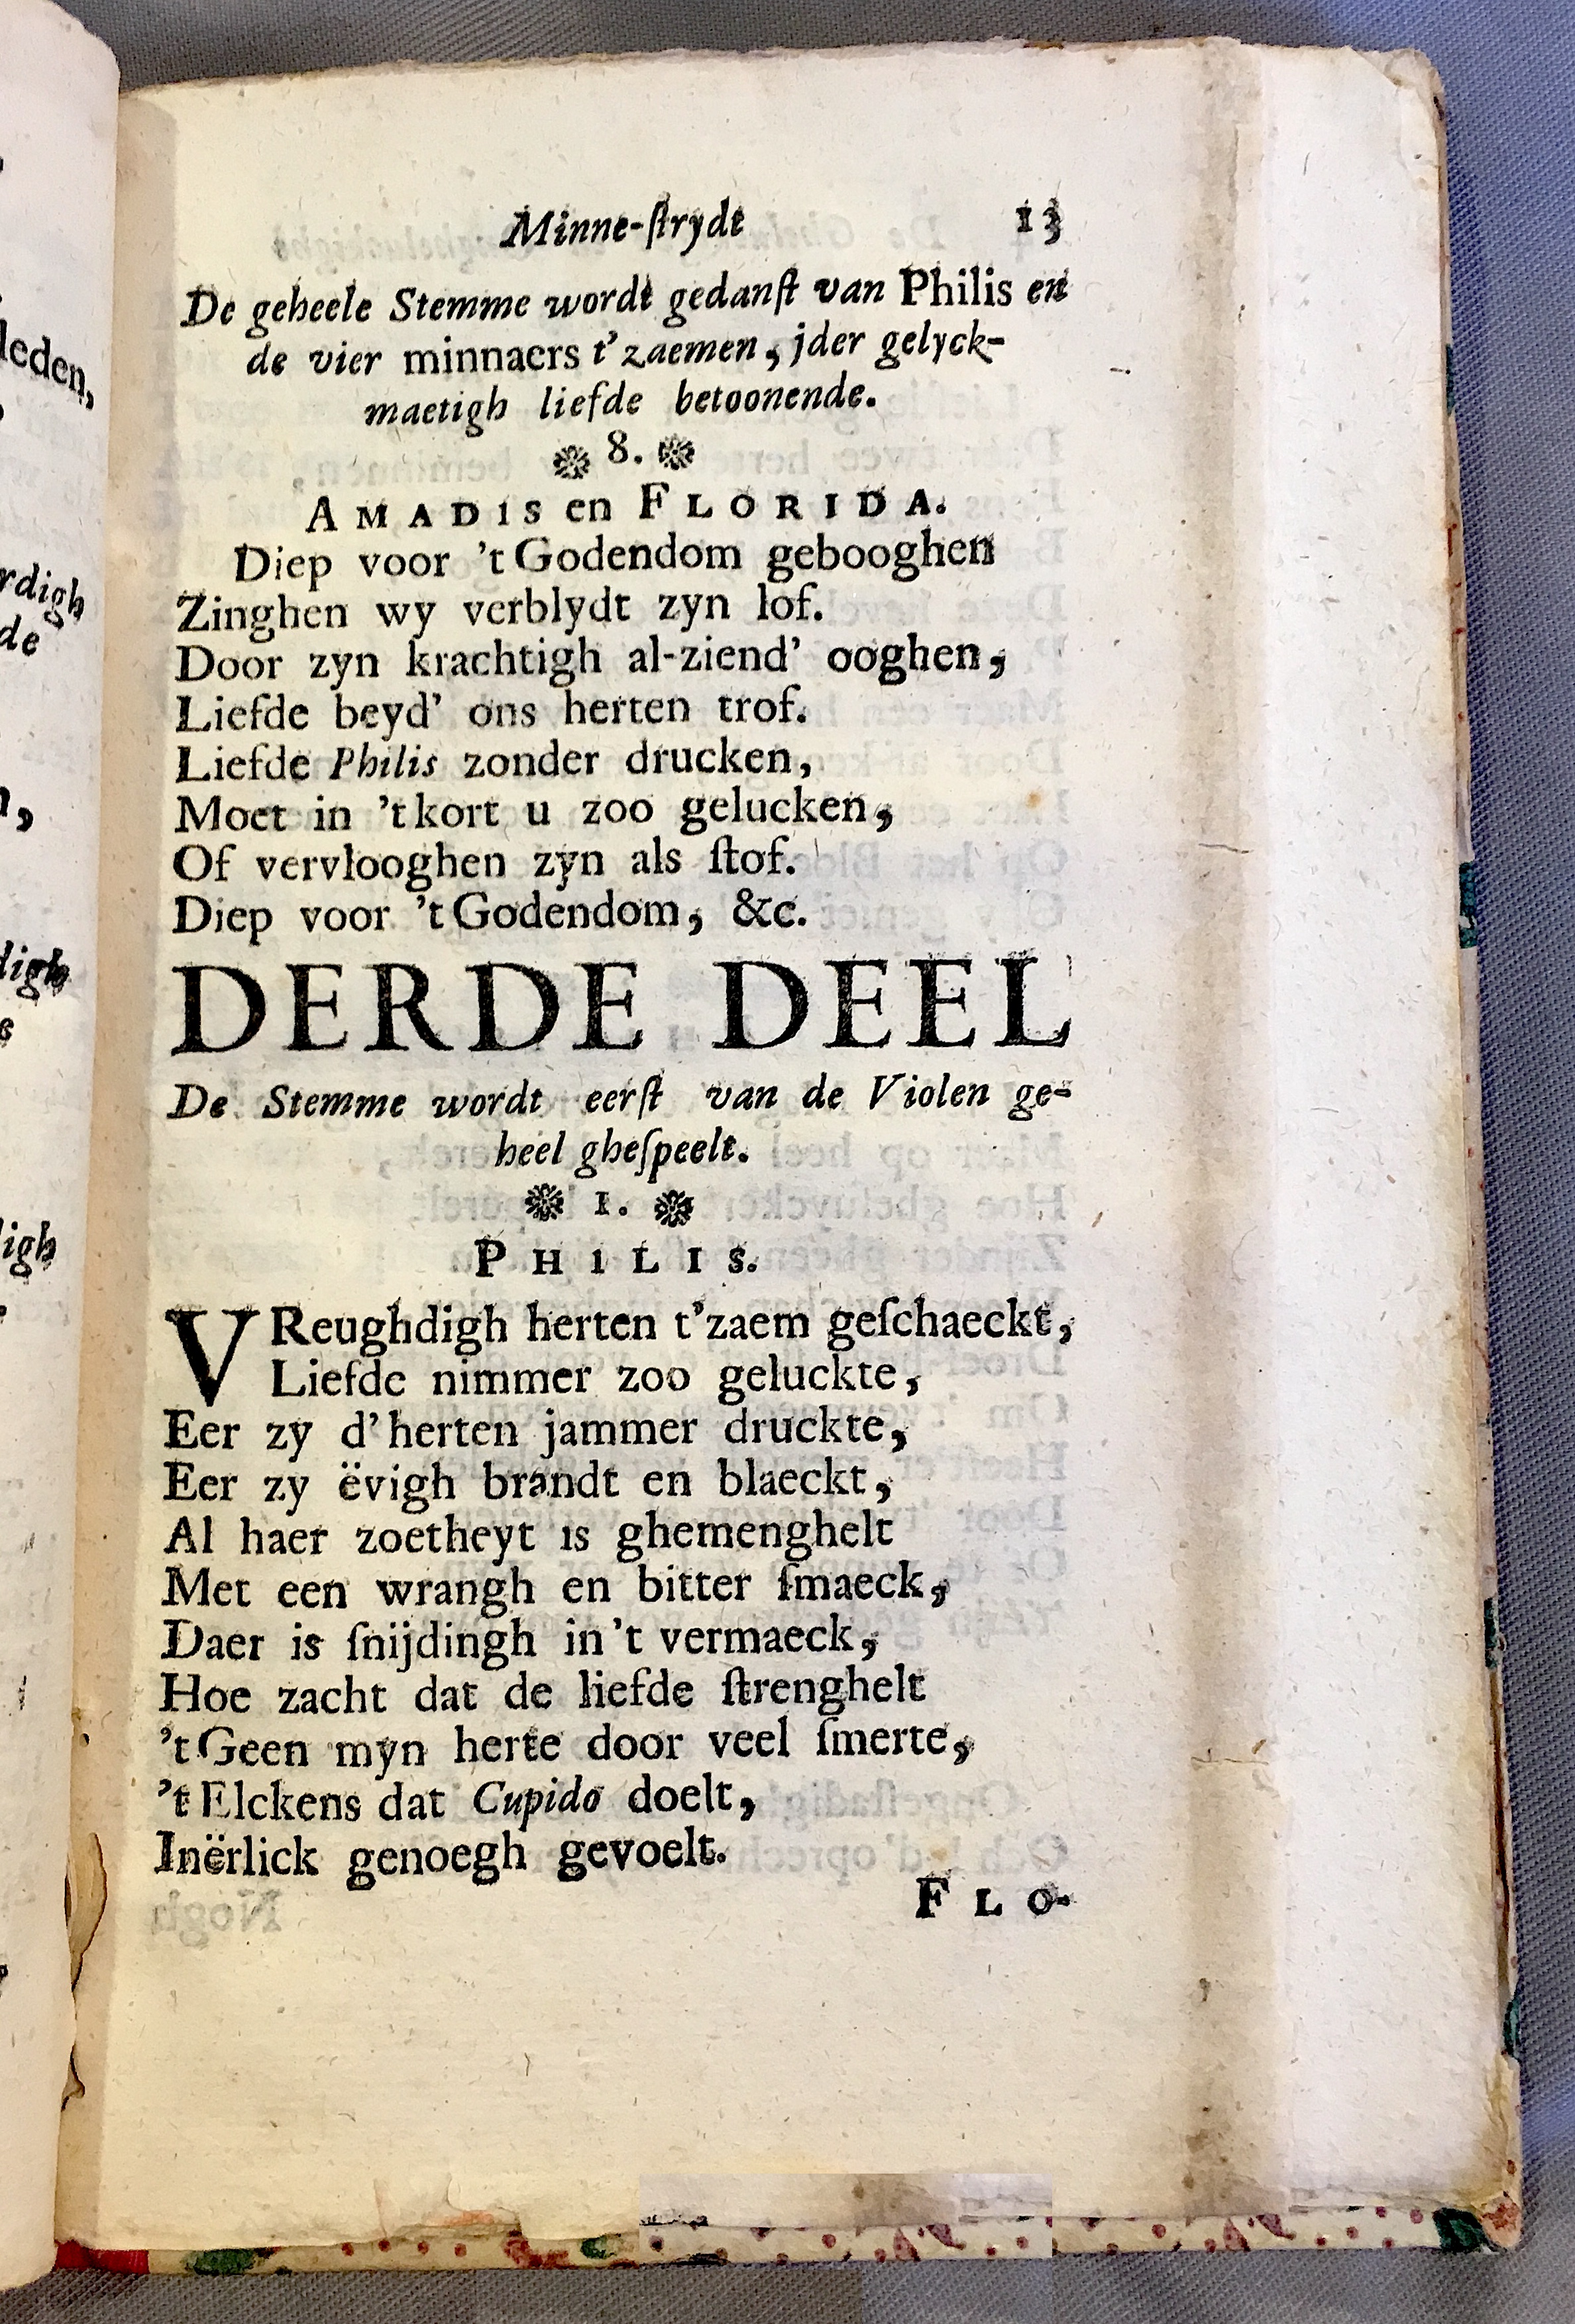 Minne-ſtrydt 13
De geheele Stemme wordt gedanſt van Philis en
de vier minnaers t'zaemen, jder gelyck-
maetigh liefde betoonende.
8.
AMADIS en FLORIDA.
Diep voor 't Godendom gebooghen
Zinghen wy verblydt zyn lof.
Door zyn krachtigh al-ziend' ooghen,
Liefde beyd' ons herten trof.
Liefde Philis zonder drucken,
Moet in 't kort u zoo gelucken,
Of vervlooghen zyn als ſtof.
Diep voor 't Godendom, &c.
DERDE DEEL
De Stemme wordt eerſt van de Violen ge-
heel gheſpeelt.
1.
PHILIS.
VReughdigh herten t'zaem geſchaeckt,
Liefde nimmer zoo geluckte,
Eer zy d'herten jammer druckte,
Eer zy ëvigh brandt en blaeckt,
Al haer zoetheyt is ghemenghelt
Met een wrangh en bitter ſmaeck,
Daer is ſnijdingh in 't vermaeck,
Hoe zacht dat de liefde ſtrenghelt
't Geen myn herte door veel ſmerte,
't Elckens dat Cupido doelt,
Inërlick genoegh gevoelt.
FLO-
leden,
rdigh
de
digh
igh